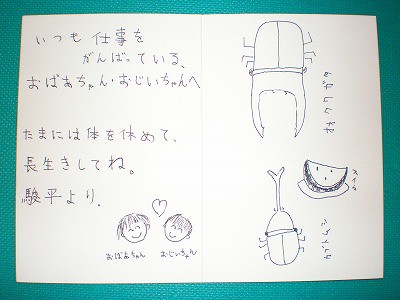 いつも仕事を
がんばっている、
おばあちゃん・おじいちゃんへ
たまには体を休めて、
長生きしてね。
駿平より。
おばあちゃん
おじいちゃん
クワガタ
スイカ
カブトムシ